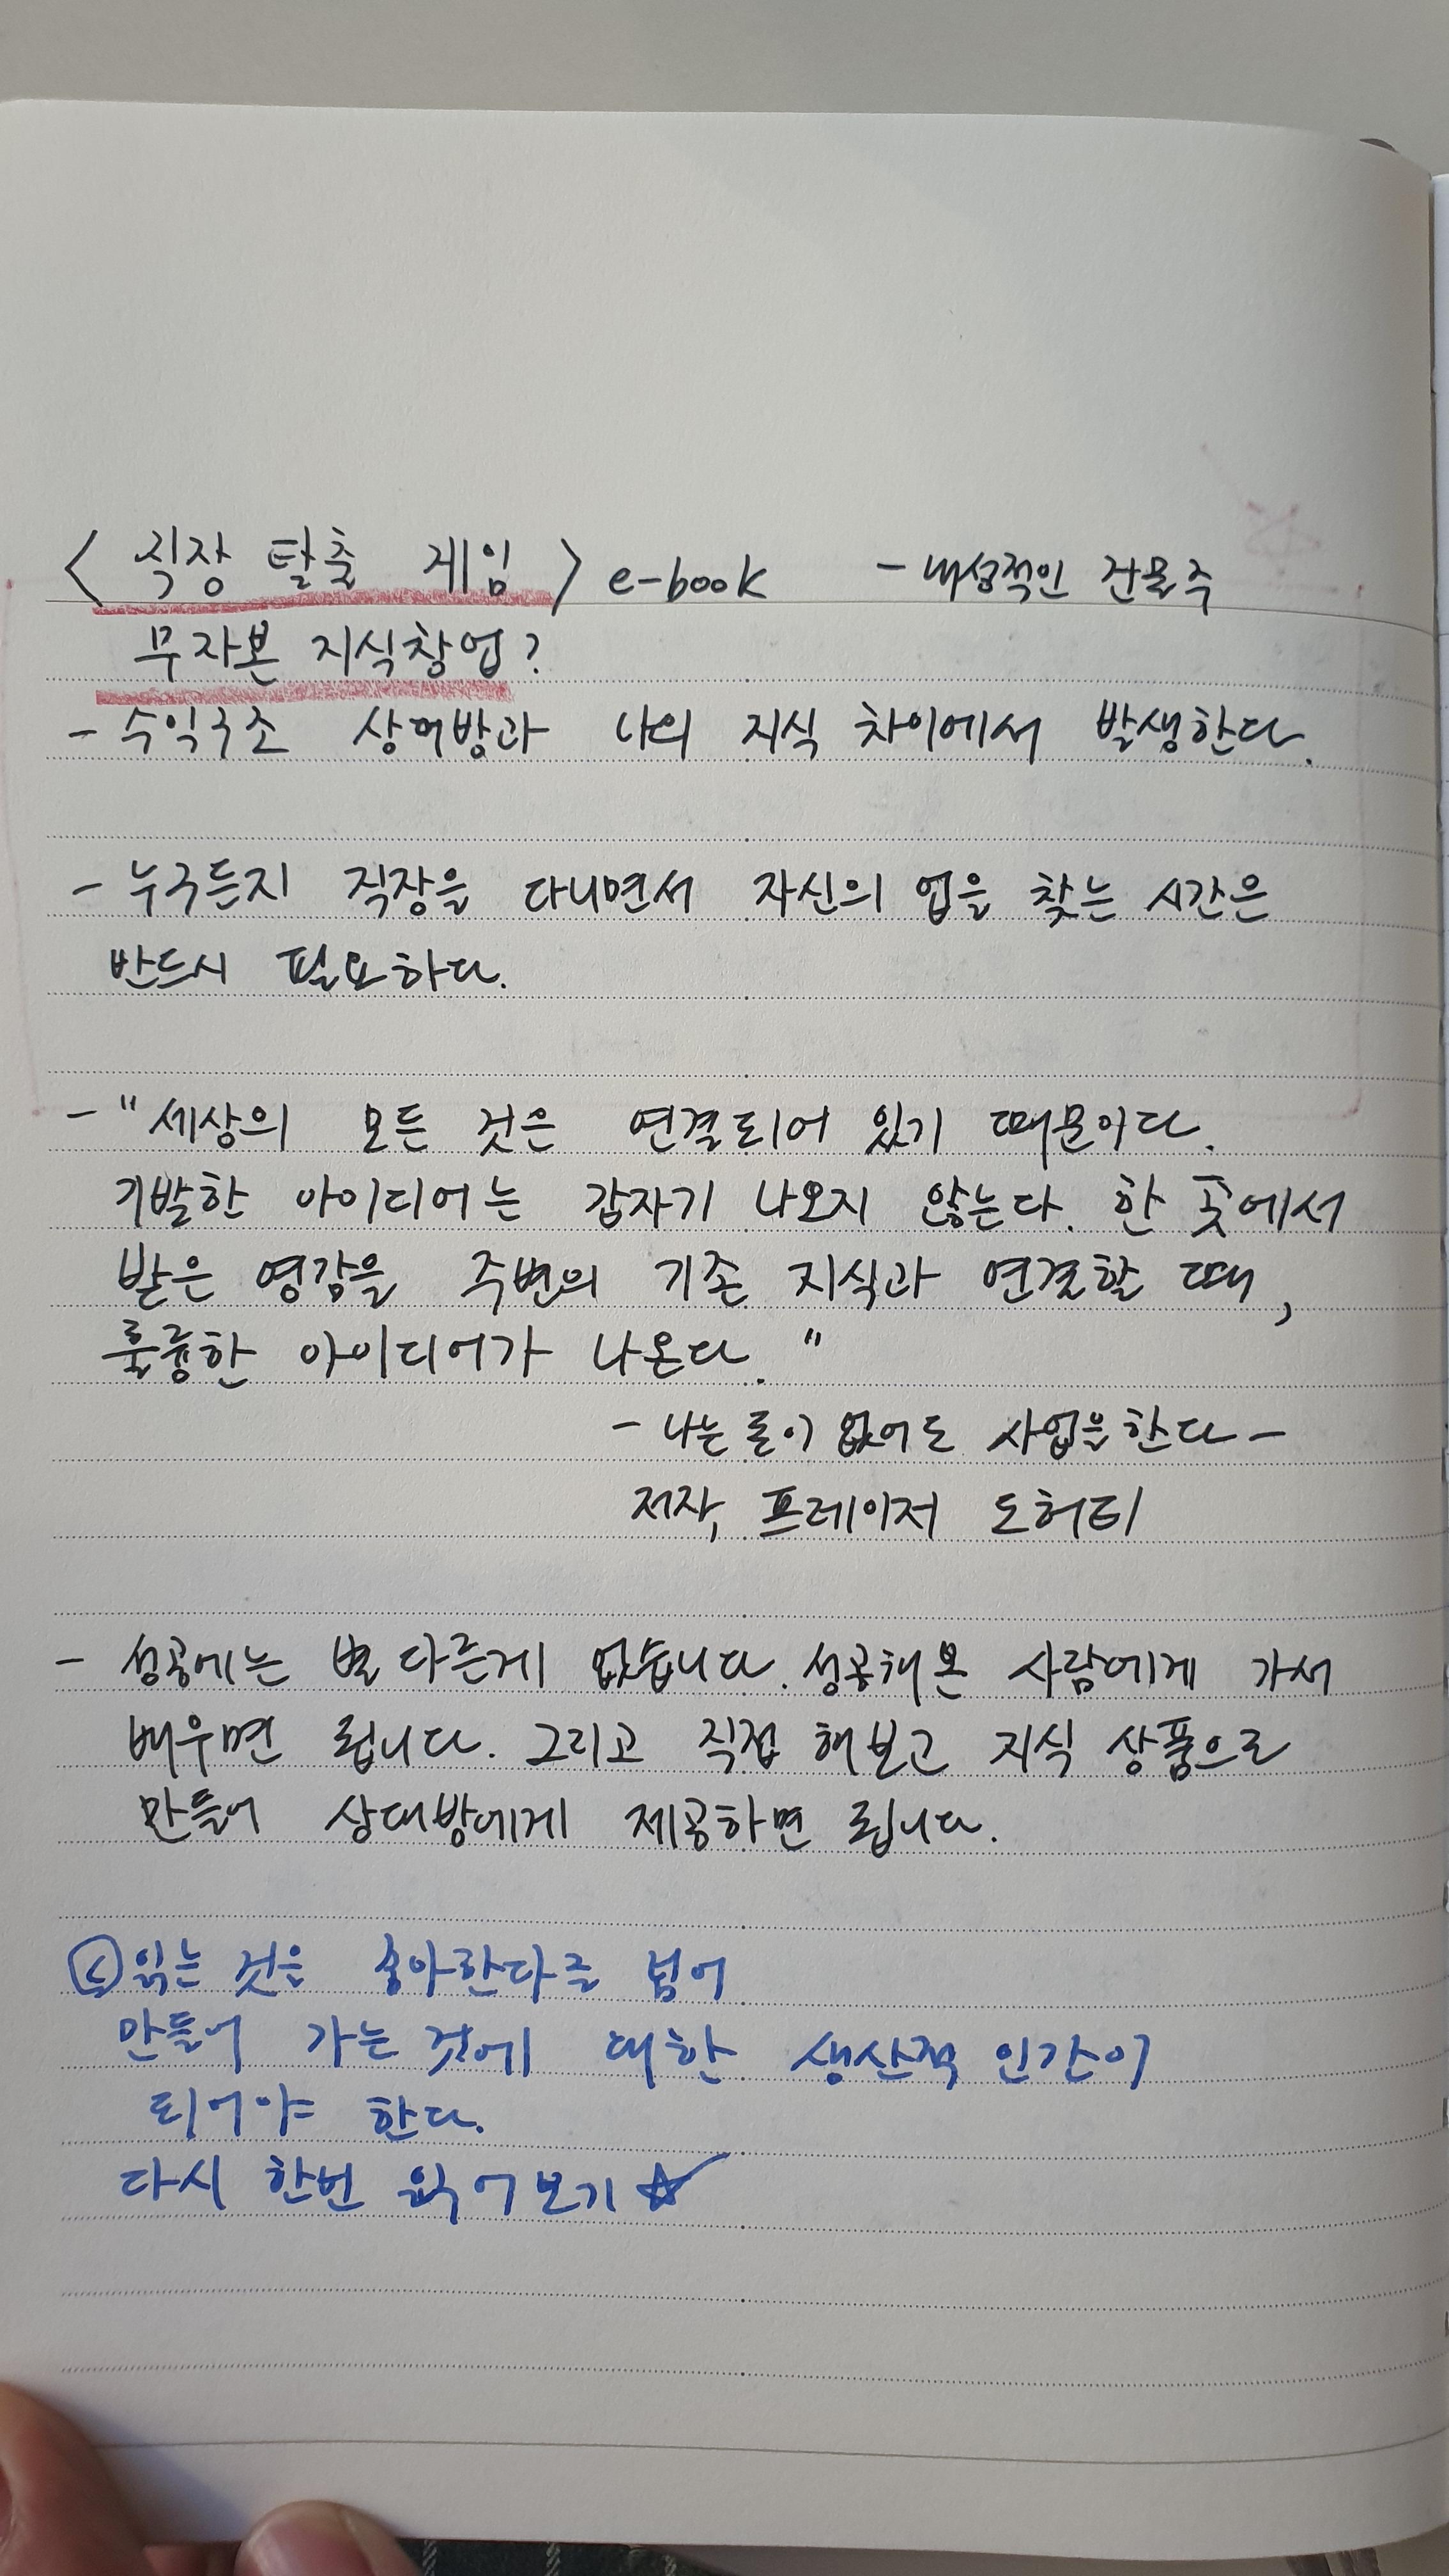 < 직장 탈출 게임 > e-book - 내성적인 건물주
무자본 지식창업?
- 수익구조 상대방과 나의 지식 차이에서 발생한다.
- 누구든지 직장을 다니면서 자신의 업을 찾는 시간은
반드시 필요하다.
- "세상의 모든 것은 연결되어 있기 때문이다.
기발한 아이디어는 갑자기 나오지 않는다. 한 곳에서
받은 영감을 주변의 기존 지식과 연결할 때,
훌륭한 아이디어가 나온다."
- 나는 돈이 없어도 사업을 한다 -
저자, 프레이저 도허티
- 성공에는 별 다른게 없습니다. 성공해본 사람에게 가서
배우면 됩니다. 그리고 직접 해보고 지식 상품으로
만들어 상대방에게 제공하면 됩니다.
읽는 것은 좋아한다를 넘어
만들어 가는 것에 대한 생산적 인간이
되어야 한다.
다시 한번 읽어보기 ☆